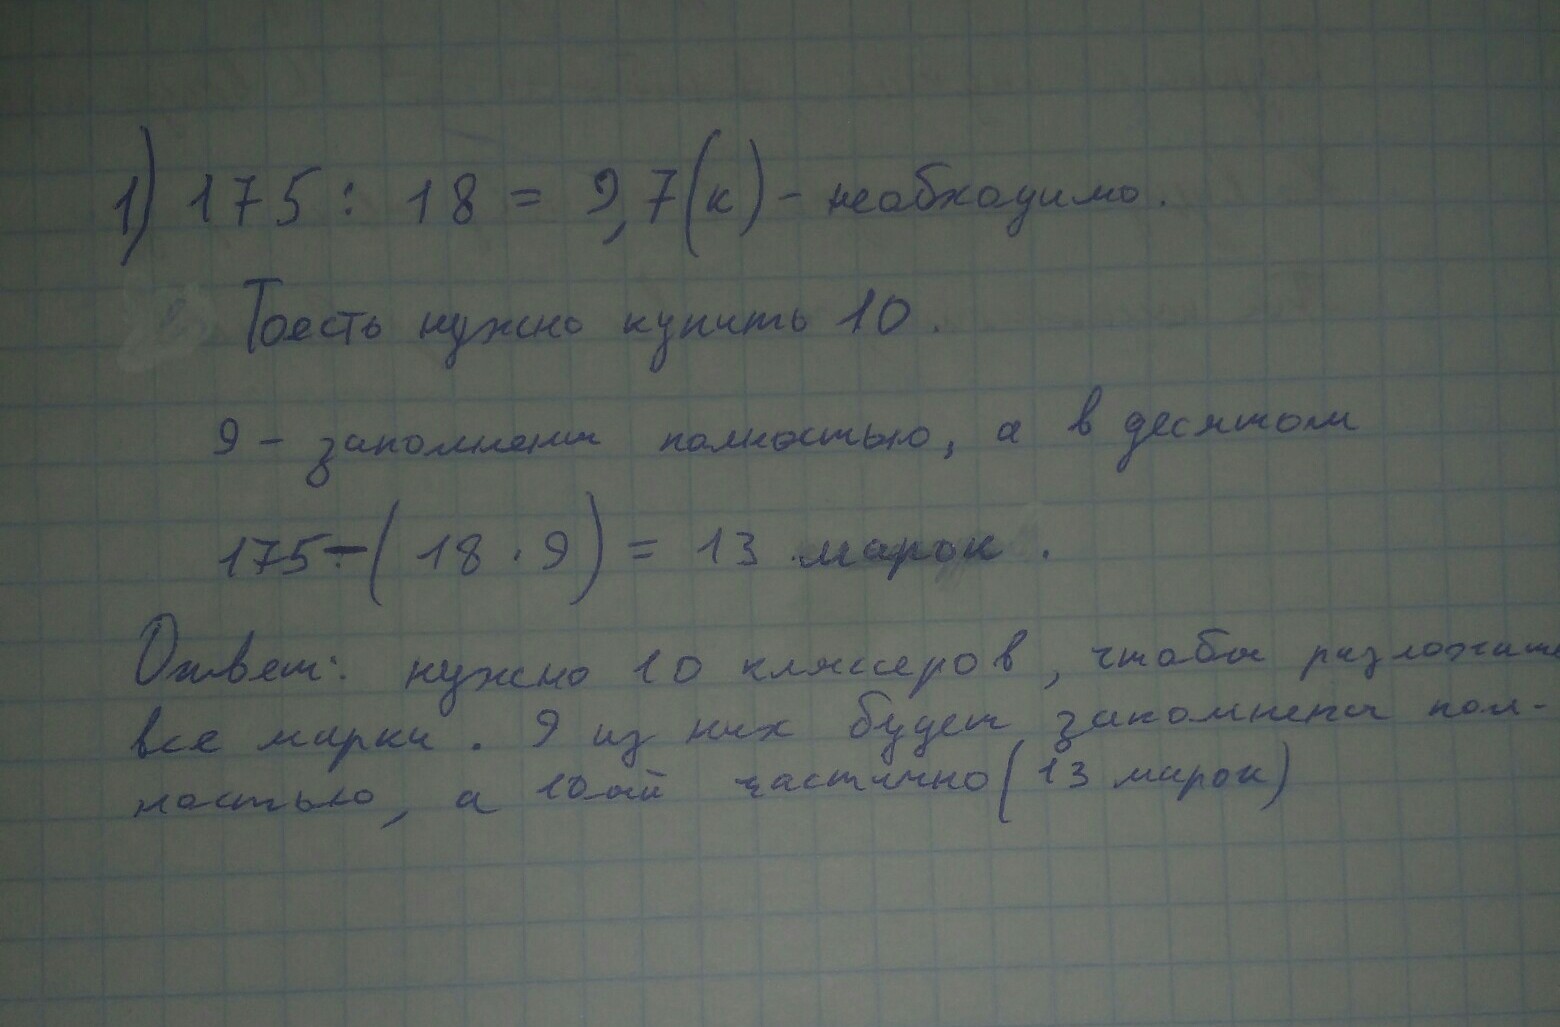 1) 175 : 18 = 9,7(к) - необходимо.
Тоесть нужно купить 10.
9 - заполнены полностью, а в десятом
175-(18·9) = 13 марок.
Ответ: нужно 10 кляссеров, чтобы разложить
все марки. 9 из них будет заполнены пол-
ностью, а 10ый частично (13 марок)